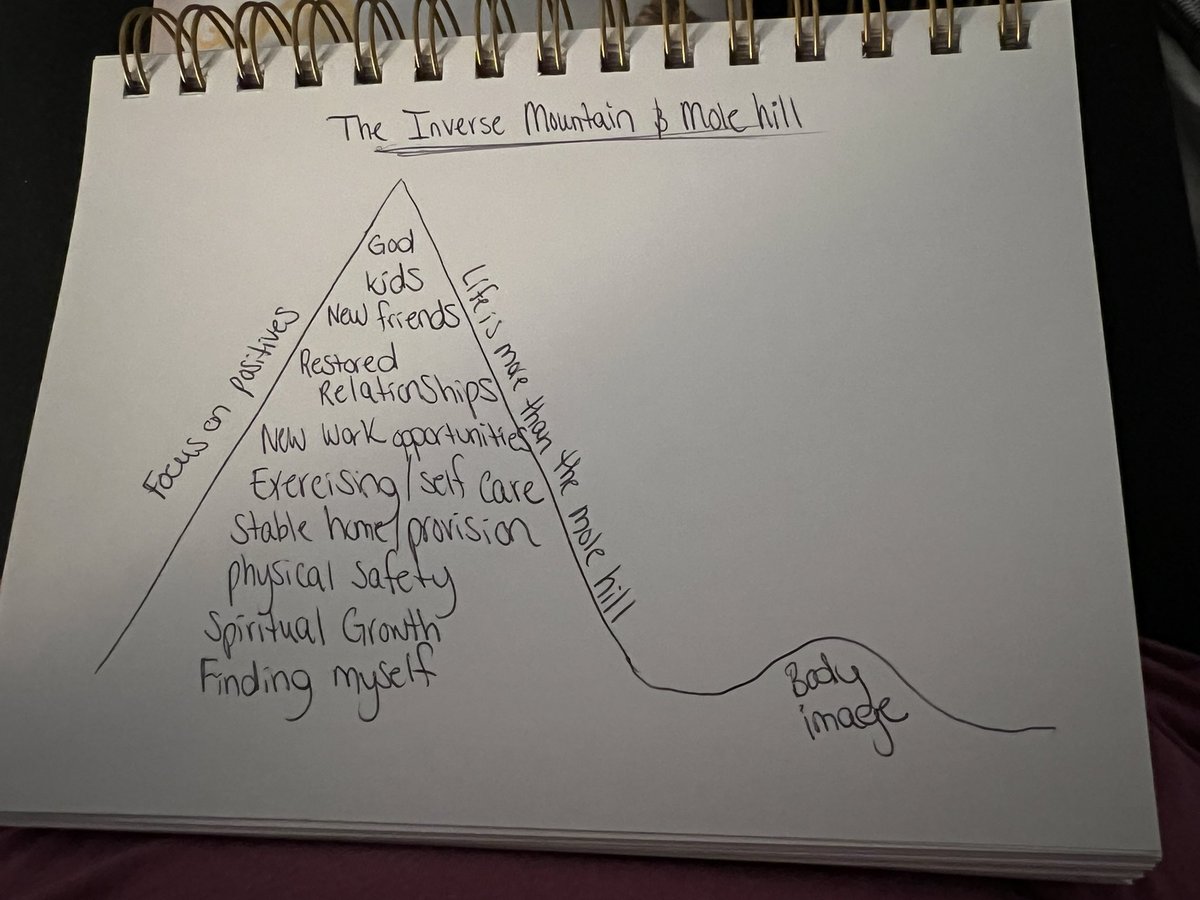 The Inverse Mountain & Mole hill
God
kids
New friends
Restored
Relationships
New work opportunities
Exercising/self care
Stable home/provision
physical safety
Spiritual Growth
Finding myself
Focus on positives
Life is more than the mole hill
Body
image